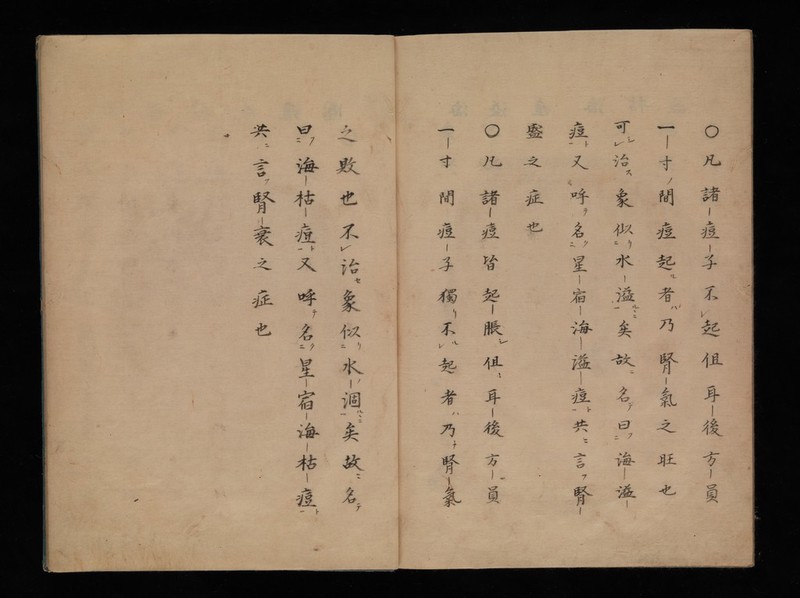 〇凡諸痘子不起但耳後方員
一寸間痘起者乃腎氣之旺也
可治象似水溢矣故名曰海溢
痘又呼名星宿海溢痘共言腎
盛之症也
〇凡諸痘皆起脹但耳後方員
一寸間痘子獨不起者乃腎氣
之敗也不治象似水涸矣故名
曰海枯痘又呼名星宿海枯痘
共言腎衰之症也